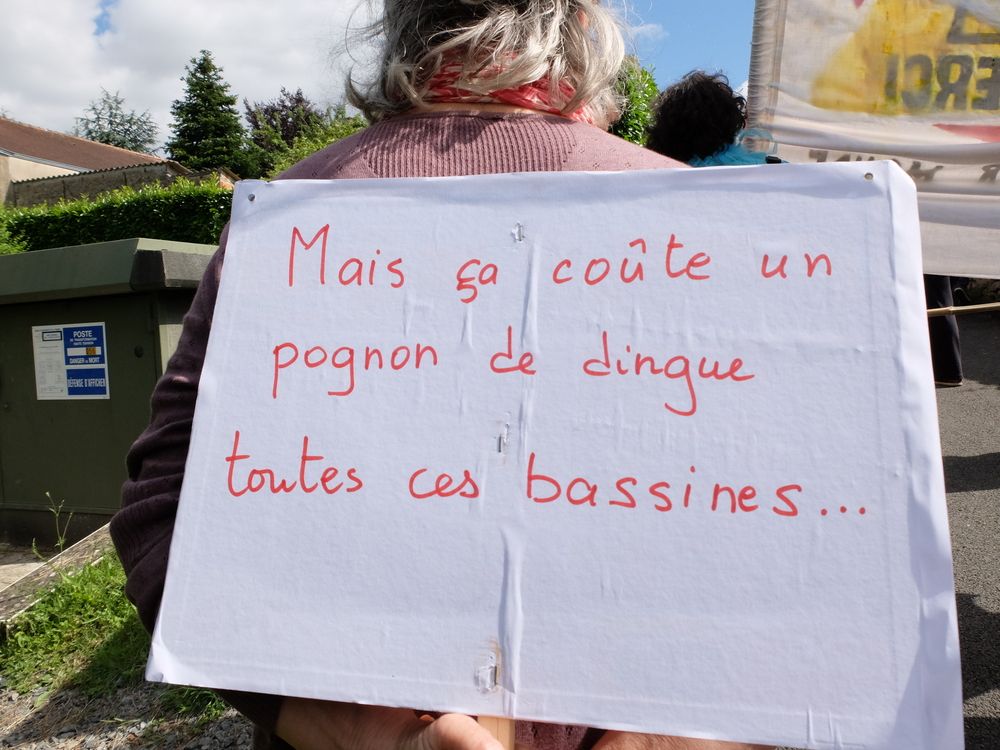 Mais ça coûte un
pognon de dingue
toutes ces bassines...
POSTE
DE TRANSFORMATION
HAUTE TENSION
DANGER DE MORT
DÉFENSE D'AFFICHER
ERCI